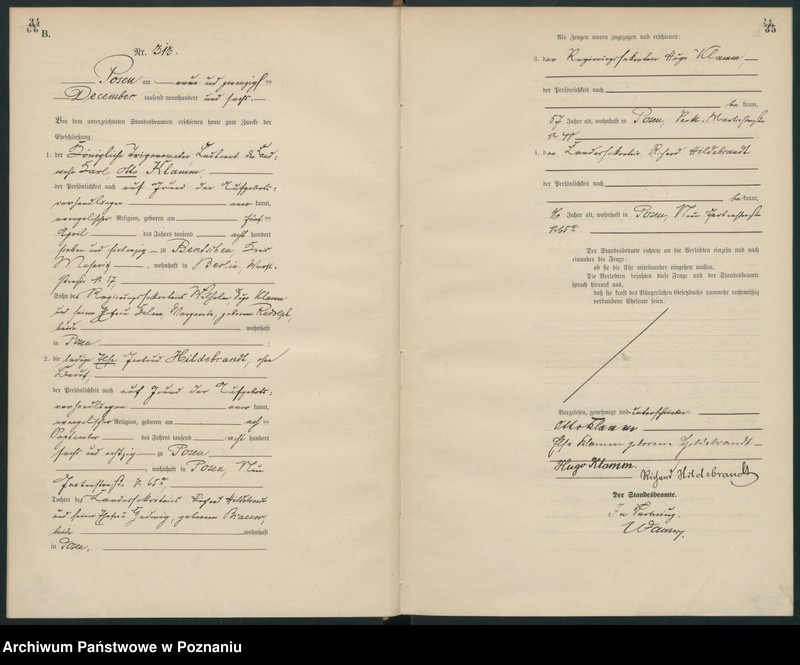 34
B.
Nr. 313.
Posen am neun und zwanzigsten
December tausend neunhundert und sechs.
Vor dem unterzeichneten Standesbeamten erschienen heute zum Zwecke der
Eheschließung:
1. der Königliche Leutnant der Land-
wehr Karl, Otto Klamm,
der Persönlichkeit nach auf Grund der Aufgebots-
verhandlungen aner kannt,
evangelischer Religion, geboren am
April des Jahres tausend acht hundert
sieben und siebenzig zu Bentschen, Kreis
Meseritz, wohnhaft in Berlin,
straße 17,
Sohn des Regierungssekretärs Wilhelm Hugo Klamm
und seiner Ehefrau Margarete, geborene
beide wohnhaft
in Posen
2. die ledige Else Hildebrandt, ohne
Beruf,
der Persönlichkeit nach auf Grund der Aufgebots-
verhandlungen aner kannt,
evangelischer Religion, geboren am
September des Jahres tausend acht hundert
sechs und achtzig zu Posen
, wohnhaft in Posen, Neue
Gartenstraße 65a,
Tochter des Landessekretärs Richard Hildebrandt
und seiner Ehefrau Hedwig, geborene
beide wohnhaft
in Posen.
35
Als Zeugen waren zugezogen und erschienen:
3. der Regierungssekretär Hugo Klamm,
der Persönlichkeit nach
be kannt,
57 Jahre alt, wohnhaft in Posen,
4. der Landessekretär Richard Hildebrandt
der Persönlichkeit nach
be kannt,
Jahre alt, wohnhaft in Posen, Neue Gartenstraße
65a.
Der Standesbeamte richtete an die Verlobten einzeln und nach
einander die Frage:
ob sie die Ehe miteinander eingehen wollen.
Die Verlobten bejahten diese Frage und der Standesbeamte
sprach hierauf aus,
daß sie kraft des Bürgerlichen Gesetzbuchs nunmehr rechtmäßig
verbundene Eheleute seien.
Vorgelesen, genehmigt und unterschrieben
Otto Klamm
Else Klamm geborene Hildebrandt
Hugo Klamm
Richard Hildebrandt
Der Standesbeamte.
In Vertretung.
Archiwum Państwowe w Poznaniu